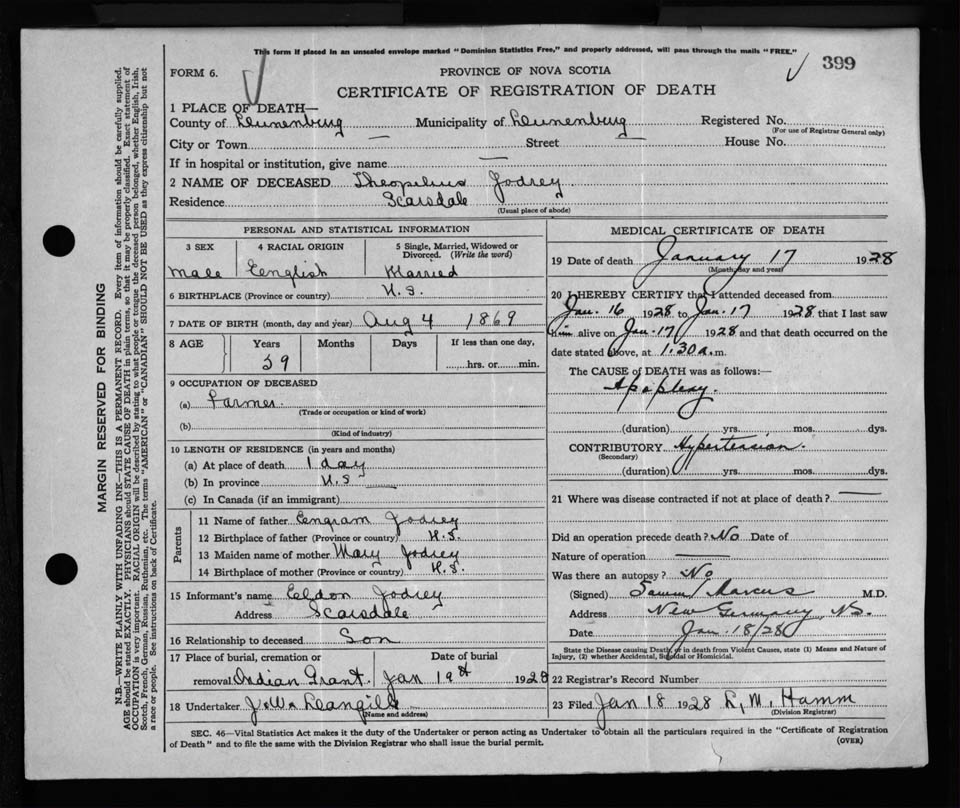 This form if placed in an unsealed envelope marked "Dominion Statistics Free," and properly addressed, will pass through the mails "FREE."
399
FORM 6.
PROVINCE OF NOVA SCOTIA
CERTIFICATE OF REGISTRATION OF DEATH
1 PLACE OF DEATH—
County of Lunenburg Municipality of Lunenburg Registered No.
(For use of Registrar General only)
City or Town — Street — House No.
If in hospital or institution, give name —
2 NAME OF DECEASED Theopilus Jodrey
Residence Scarsdale
(Usual place of abode)
PERSONAL AND STATISTICAL INFORMATION
3 SEX 4 RACIAL ORIGIN 5 Single, Married, Widowed or Divorced. (Write the word)
Male English Married
6 BIRTHPLACE (Province or country) N.S.
7 DATE OF BIRTH (month, day and year) Aug 4 1869
8 AGE Years Months Days If less than one day,
59 hrs. or min.
9 OCCUPATION OF DECEASED
(a) Farmer
(Trade or occupation or kind of work)
(b)
(Kind of industry)
10 LENGTH OF RESIDENCE (in years and months)
(a) At place of death 1 day
(b) In province N.S
(c) In Canada (if an immigrant)
Parents
11 Name of father Jodrey
12 Birthplace of father (Province or country) N.S.
13 Maiden name of mother Mary Jodrey
14 Birthplace of mother (Province or country) N.S.
15 Informant's name Eldon Jodrey
Address Scarsdale
16 Relationship to deceased Son
17 Place of burial, cremation or Date of burial
removal Indian Grant Jan 19th 1928
18 Undertaker J. W. Leangille
(Name and address)
MEDICAL CERTIFICATE OF DEATH
19 Date of death January 17 1928
(Month, day and year)
20 I HEREBY CERTIFY that I attended deceased from
Jan. 16 1928 to Jan. 17 1928 that I last saw
him alive on Jan. 17 1928 and that death occurred on
date stated above, at 1.30 a.m.
The CAUSE of DEATH was as follows:—
Apoplexy.
(duration) yrs. mos. dys.
CONTRIBUTORY Hypertension.
(Secondary)
(duration) yrs. mos. dys.
21 Where was disease contracted if not at place of death? —
Did an operation precede death? No Date of
Nature of operation —
Was there an autopsy? No
(Signed) Saml Marcus M.D.
Address New Germany N.S.
Date Jan. 18/28
State the Disease causing Death, or in death from Violent Causes, state (1) Means and Nature of
Injury, (2) whether Accidental, Suicidal or Homicidal.
22 Registrar's Record Number
23 Filed Jan 18 1928 L. M. Hamm
(Division Registrar)
SEC. 46—Vital Statistics Act makes it the duty of the Undertaker or person acting as Undertaker to obtain all the particulars required in the "Certificate of Registration
of Death" and to file the same with the Division Registrar who shall issue the burial permit.
(OVER)
MARGIN RESERVED FOR BINDING
N.B.—WRITE PLAINLY WITH UNFADING INK—THIS IS A PERMANENT RECORD. Every item of information should be carefully supplied.
AGE should be stated EXACTLY. PHYSICIANS should STATE CAUSE OF DEATH in plain terms, so that it may be properly classified. Exact statement of
OCCUPATION is very important. RACIAL ORIGIN will be described by stating to what people or tongue the deceased person belonged, whether English, Irish,
Scotch, French, German, Russian, Ruthenian, etc. The terms "AMERICAN" or "CANADIAN" SHOULD NOT BE USED as they express citizenship but not
a race or people. See instructions on back of Certificate.